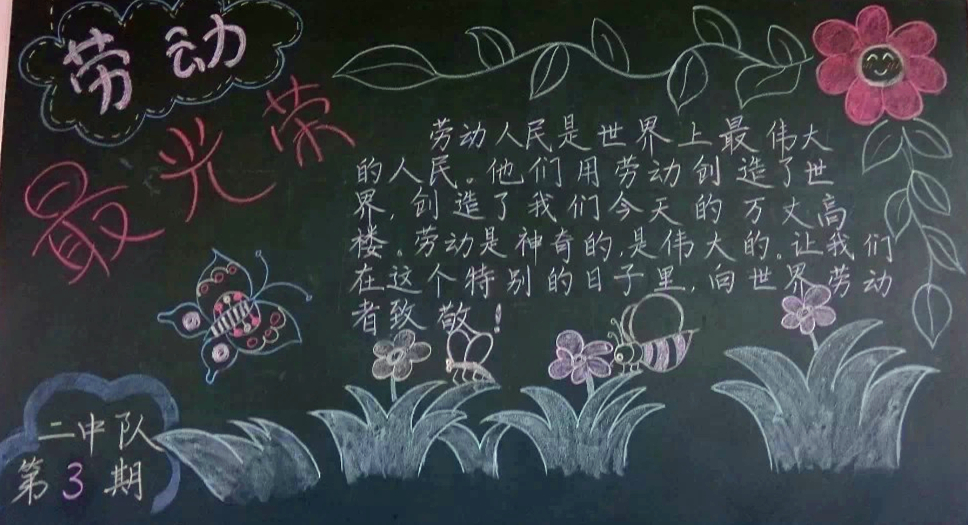 劳动
最光荣
劳动人民是世界上最伟大
的人民。他们用劳动创造了世
界,创造了我们今天的万丈高
楼。劳动是神奇的,是伟大的。让我们
在这个特别的日子里,向世界劳动
者致敬!
二中队
第3期